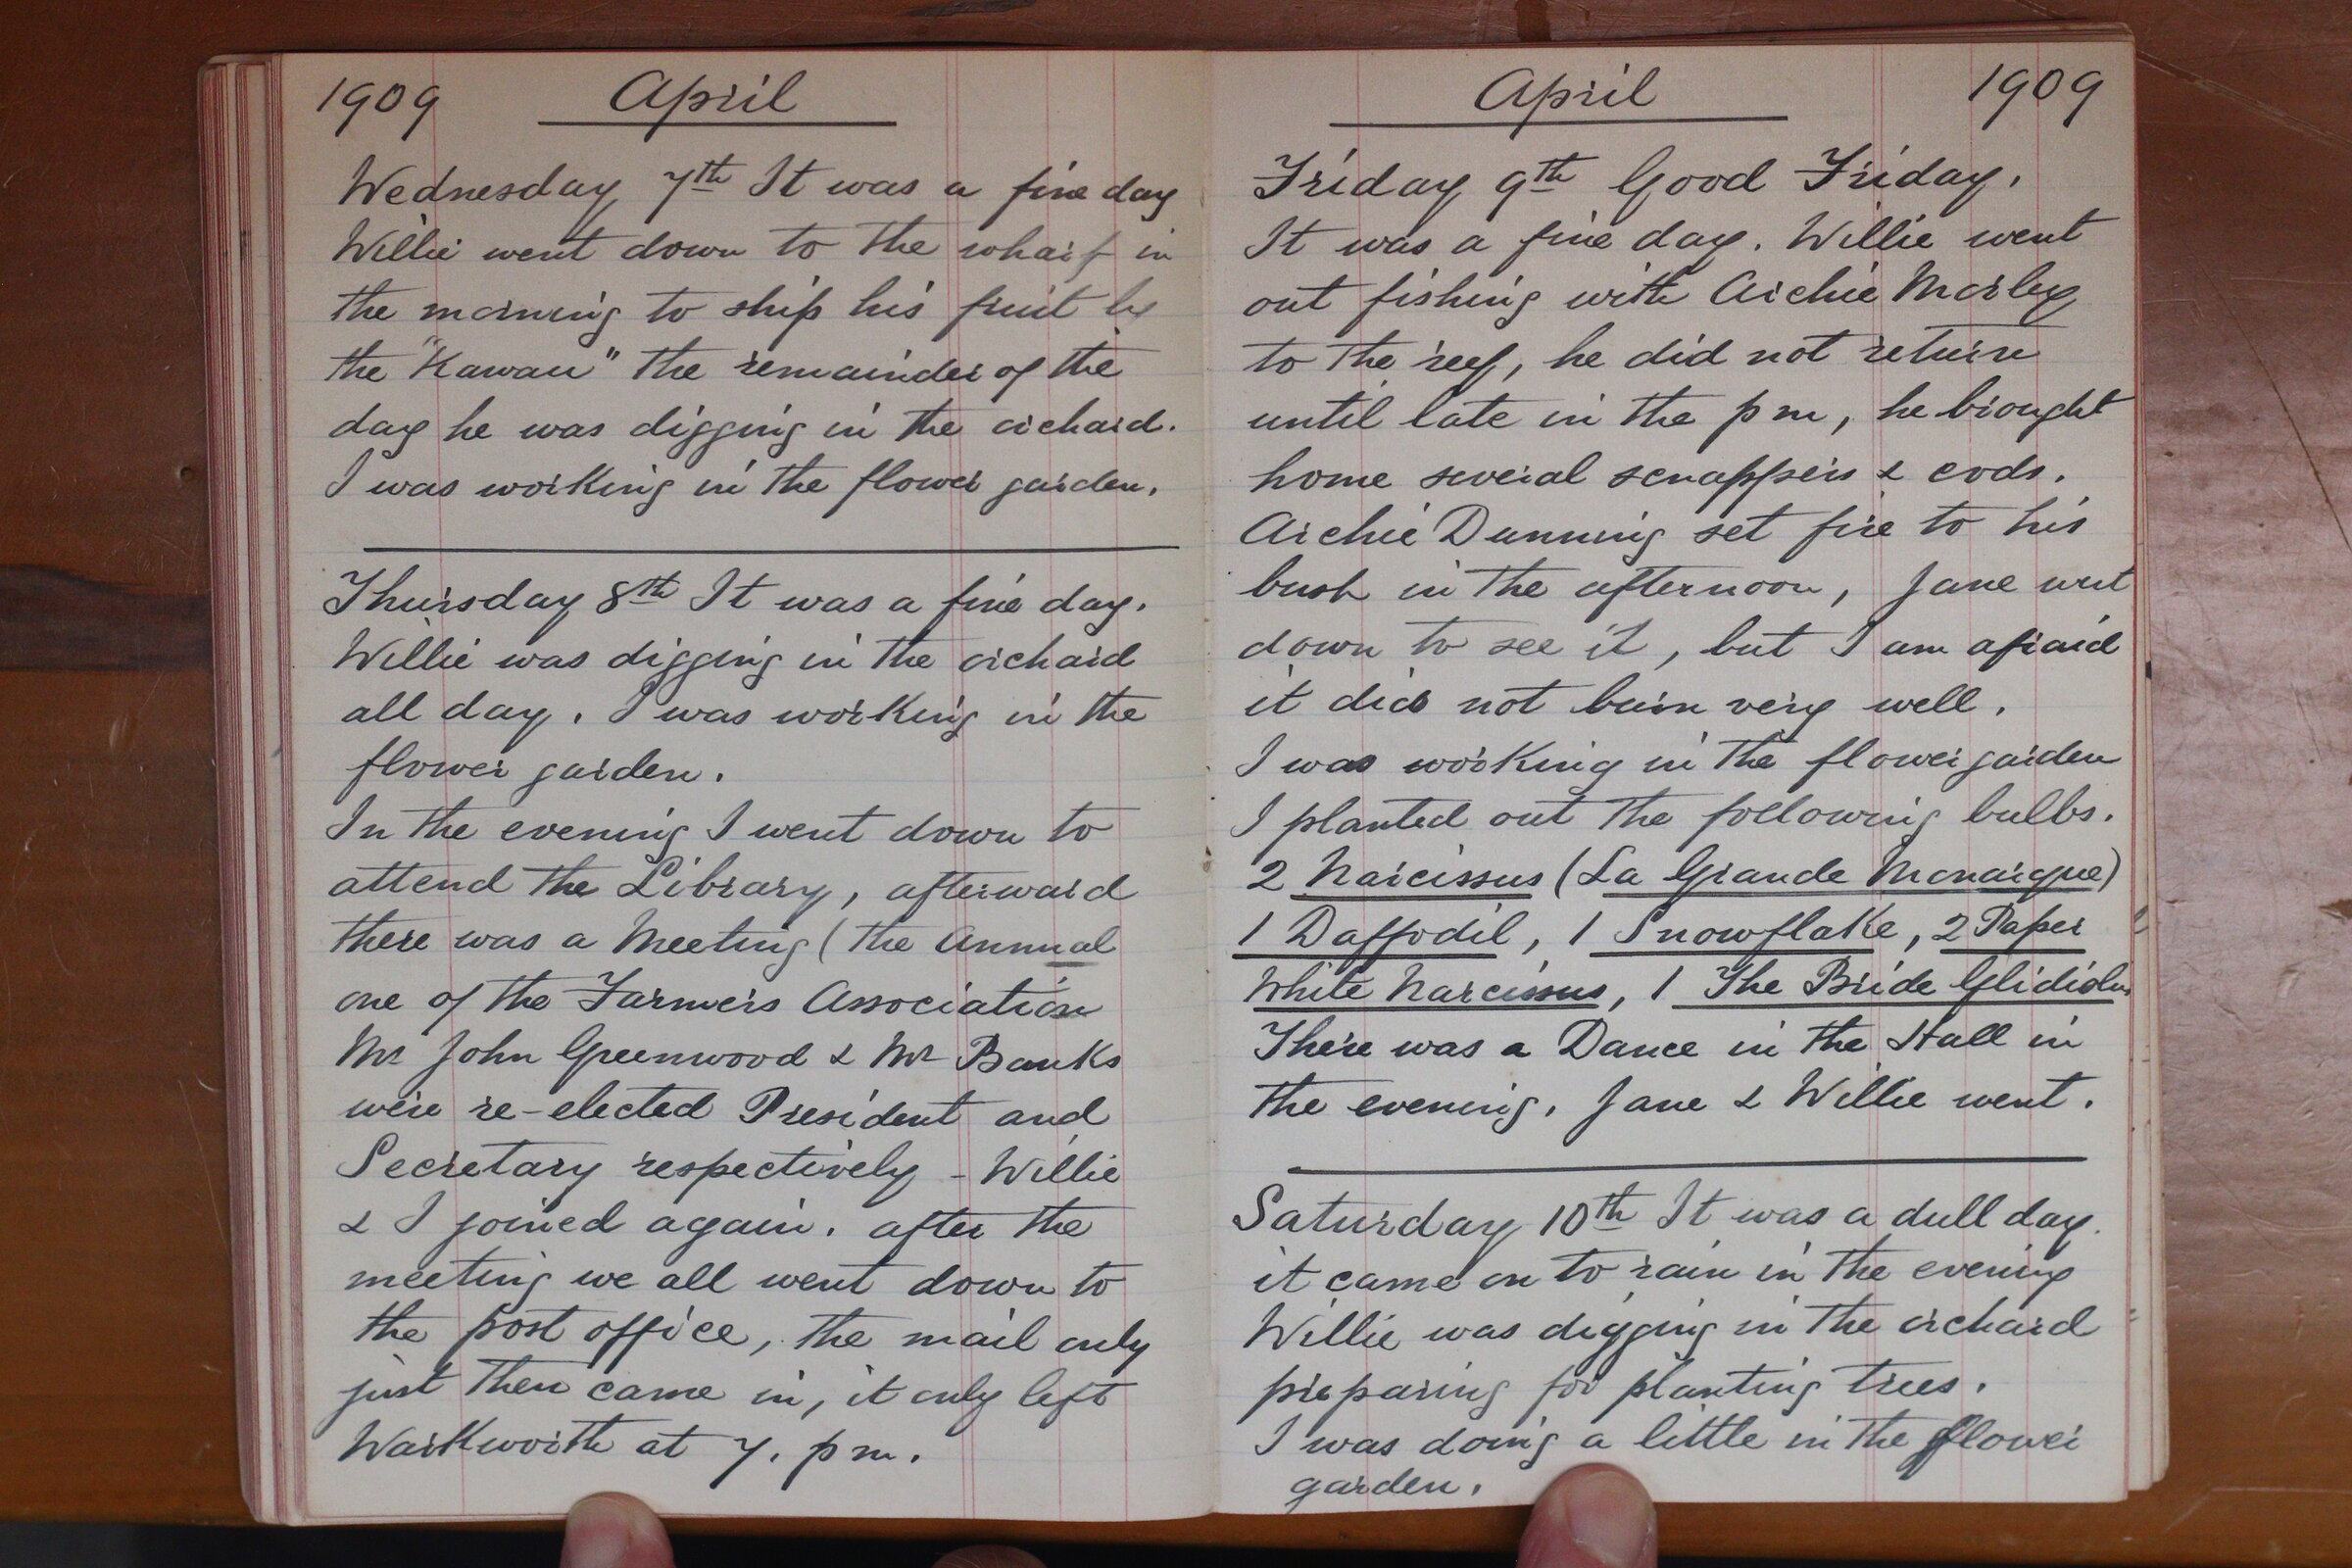 1909 April
Wednesday 7th It was a fine day
Willie went down to the wharf in
the morning to ship his fruit by
the "Kawau" the remainder of the
day he was digging in the orchard.
I was working in the flower garden.
Thursday 8th It was a fine day.
Willie was digging in the orchard
all day. I was working in the
flower garden.
In the evening I went down to
attend the Library, afterward
there was a Meeting (the Annual
one of the Farmers Association
Mr John Greenwood & Mr Banks
were re-elected President and
Secretary respectively - Willie
& I joined again. after the
meeting we all went down to
the post office, the mail only
just then came in, it only left
Warkworth at 7. pm.
April 1909
Friday 9th Good Friday.
It was a fine day. Willie went
out fishing with Archie Morley
to the reef, he did not return
until late in the pm, he brought
home several scnappers & cods.
Archie Dunning set fire to his
bush in the afternoon, Jane went
down to see it, but I am afraid
it did not burn very well.
I was working in the flower garden
I planted out the following bulbs.
2 Narcissus (La Grande Monarque)
1 Daffodil, 1 Snowflake, 2 Paper
White Narcissus, 1 The Bride Glidiolus
There was a Dance in the Hall in
the evening. Jane & Willie went.
Saturday 10th It was a dull day.
it came on to rain in the evening
Willie was digging in the orchard
preparing for planting trees.
I was doing a little in the flower
garden.